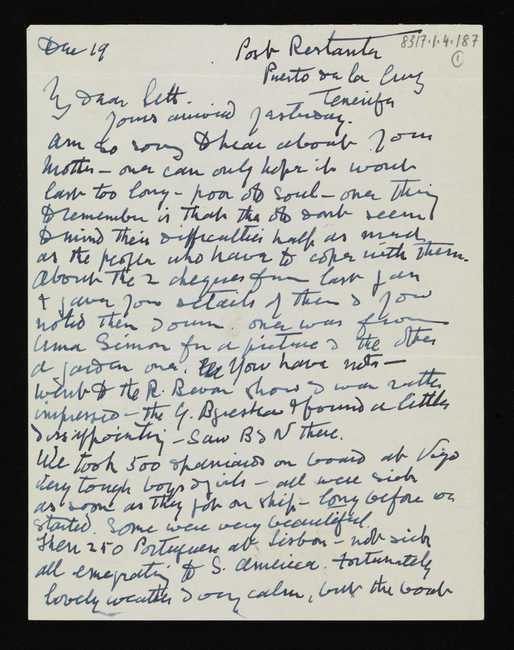 Dec 19 Post Restante 8317.1.4.187
1
Puerto de la Cruz
Tenerife
My dear Sett.
Yours arrived yesterday.
Am so sorry to hear about your
Mother – one can only hope it wont
last too long – poor old soul – one thing
to remember is that the old dont seem
to mind their difficulties half as much
as the people who have to cope with them.
About the 2 cheques from last year
I gave you details of them & you
noted them down one was from
Simon for a picture & the other
a garden one. You have not –
Went to the R. Bevan show & was rather
impressed – the I found a little
disappointing – Saw B & N there.
We took 500 Spaniards on board at Vigo
Very tough boys & girls – all were sick
as soon as they got on ship – long before we
started. Some were very beautiful.
Then 250 Portuguese at Lisbon – not sick
all emigrating to S. America. Fortunately
lovely weather & very calm, but the boat